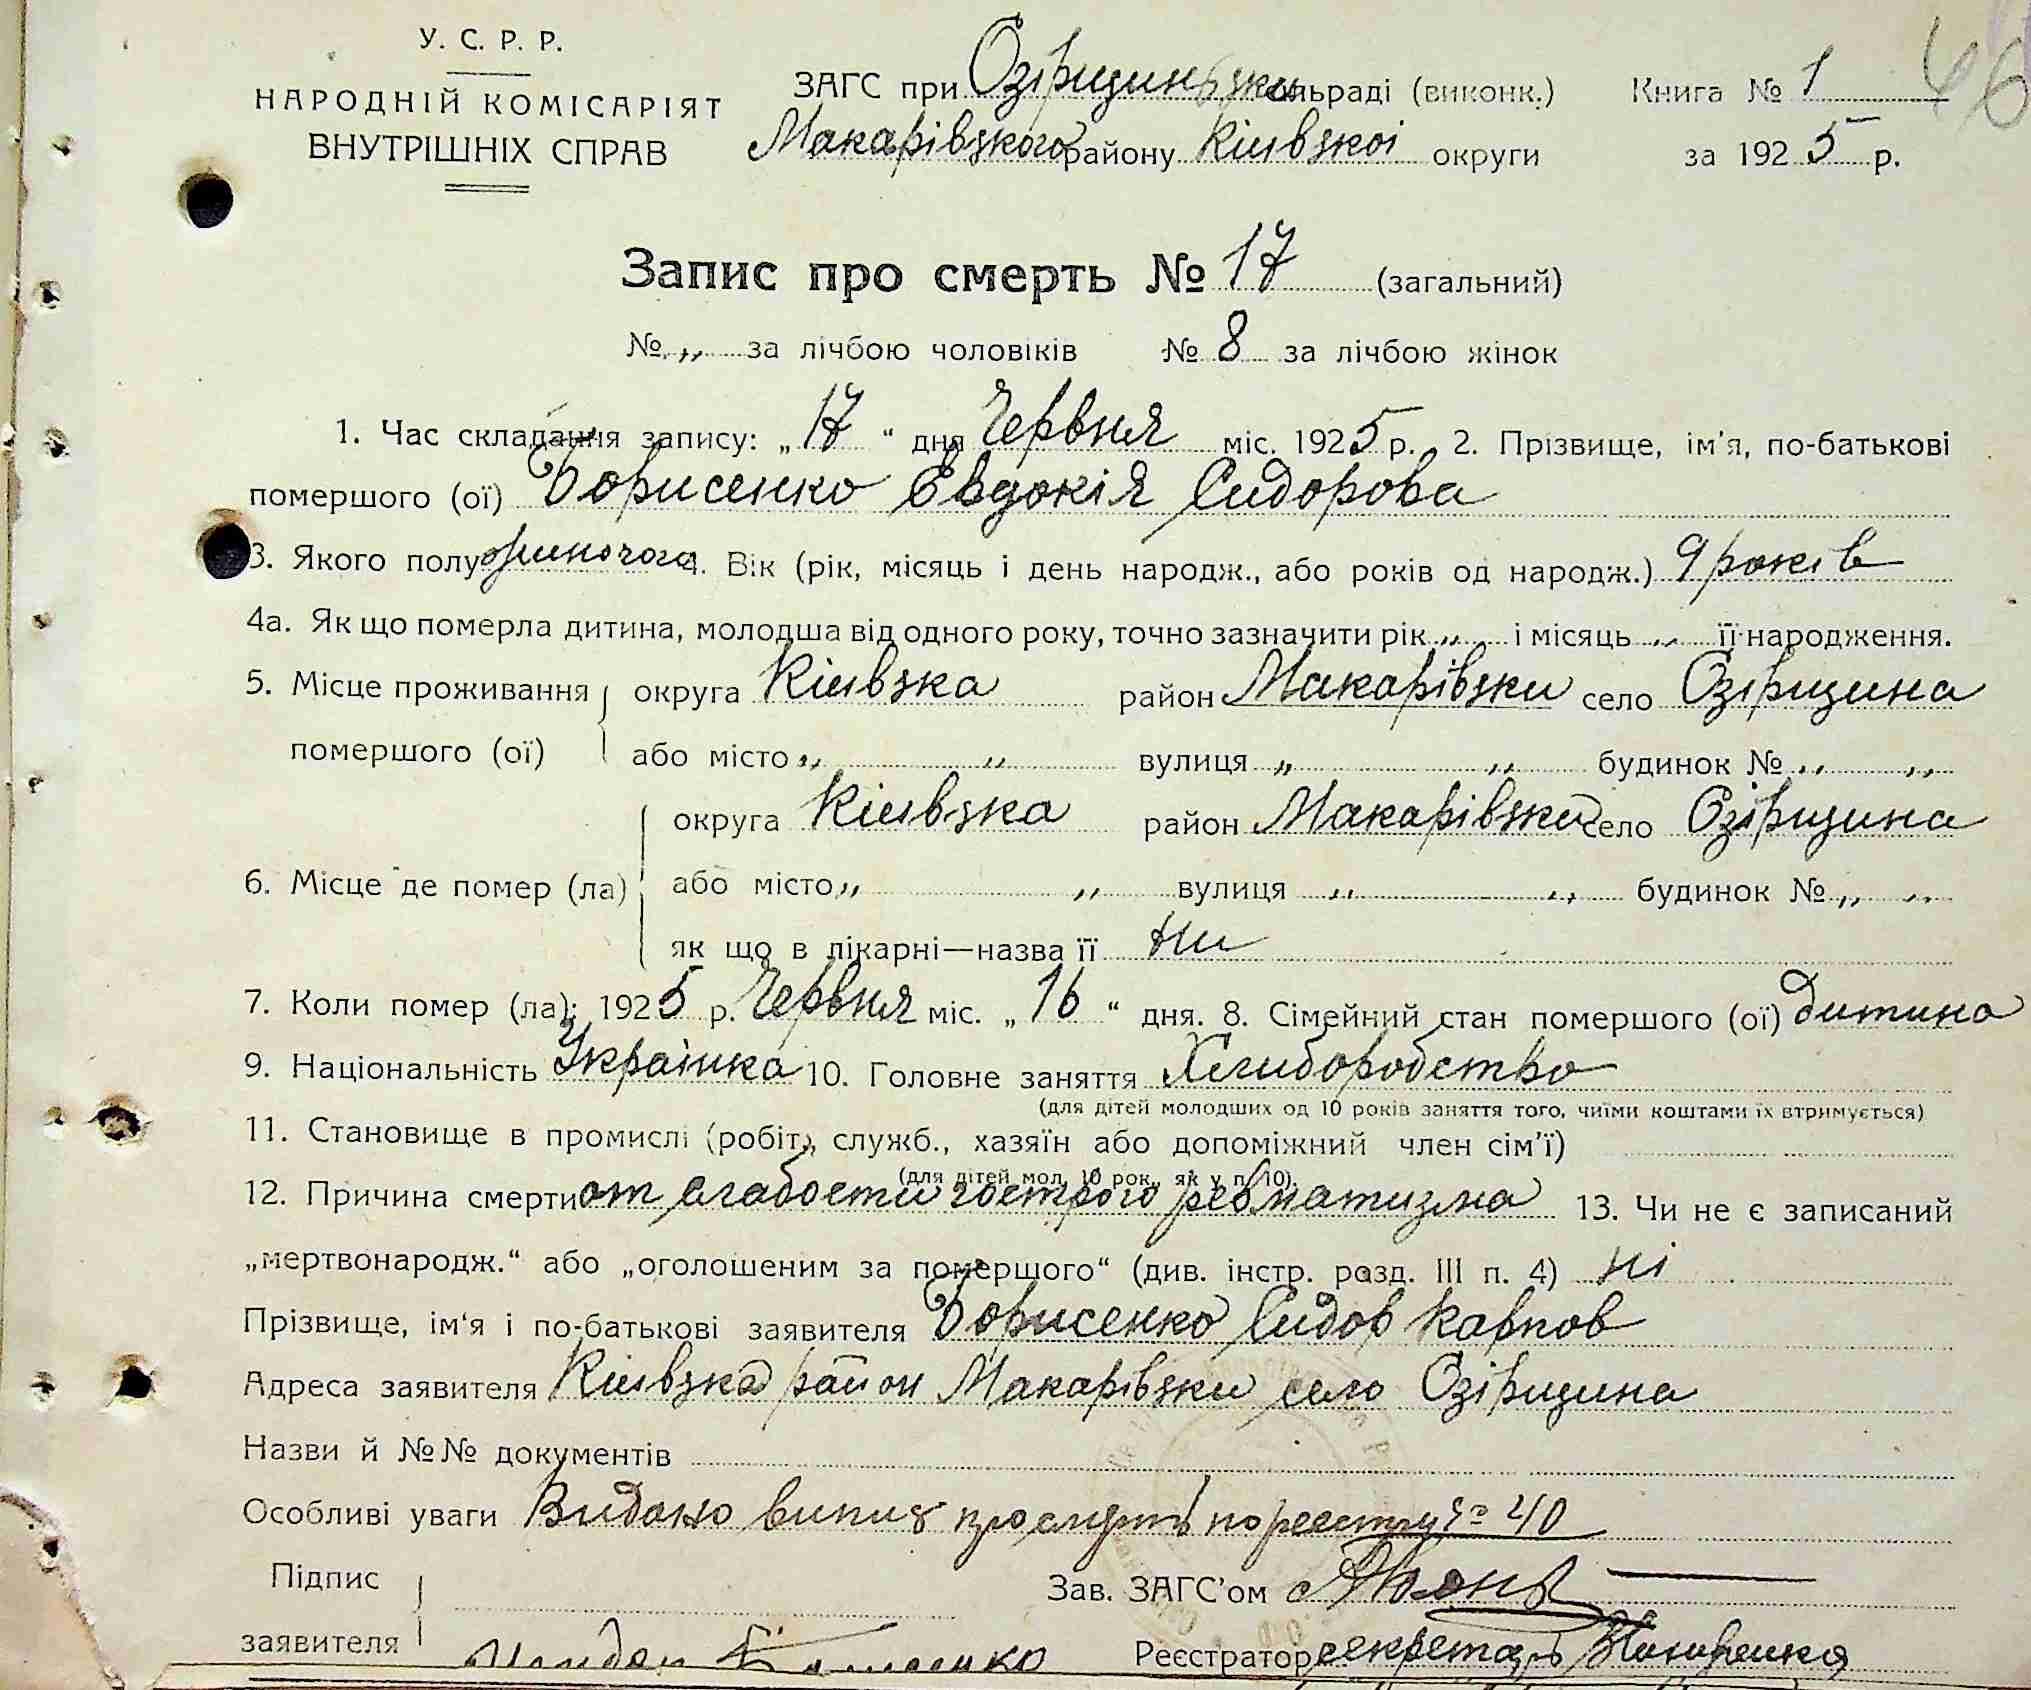 У. С. Р. Р.
НАРОДНІЙ КОМІСАРІЯТ
ВНУТРІШНІХ СПРАВ
ЗАГС при Озірщинській сільраді (виконк.) Книга № 1
46
Макарівзкого району Кіивзкоі округи за 1925 р.
Запис про смерть № 17 (загальний)
№ „ за лічбою чоловіків № 8 за лічбою жінок
1. Час складання запису: „17“ дня Червня міс. 1925 р. 2. Прізвище, ім'я, по-батькові
помершого (ої) Борисенко Евдокія Сидорова
3. Якого полу жиночога 4. Вік (рік, місяць і день народж., або років од народж.) 9 років
4а. Як що померла дитина, молодша від одного року, точно зазначити рік „ і місяць „ її народження.
5. Місце проживання округа Кіивзка район Макарівзки село Озірщина
помершого (ої) або місто „ „ вулиця „ „ будинок № „ „
округа Кіивзка район Макарівзки село Озірщина
6. Місце де помер (ла) або місто „ „ вулиця „ „ будинок № „ „
як що в лікарні—назва її ни
7. Коли помер (ла): 1925 р. Червня міс. „16“ дня. 8. Сімейний стан помершого (ої) дитина
9. Національність Украінка 10. Головне заняття Хлиборобство
(для дітей молодших од 10 років заняття того, чиїми коштами їх втримується)
11. Становище в промислі (робіт., служб., хазяїн або допоміжний член сім'ї)
(для дітей мол. 10 рок., як у п. 10).
12. Причина смерти от слабости гострого ревматизма 13. Чи не є записаний
„мертвонародж.“ або „оголошеним за помершого“ (див. інстр. розд. III п. 4) ні
Прізвище, ім'я і по-батькові заявителя Борисенко Сидор Карпов
Адреса заявителя Кіивзка район Макарівзки село Озірщина
Назви й №№ документів
Особливі уваги Видано випис про смерть по реестру № 40
Підпис Зав. ЗАГС'ом
заявителя Сидор Борисенко Реєстратор секретарь